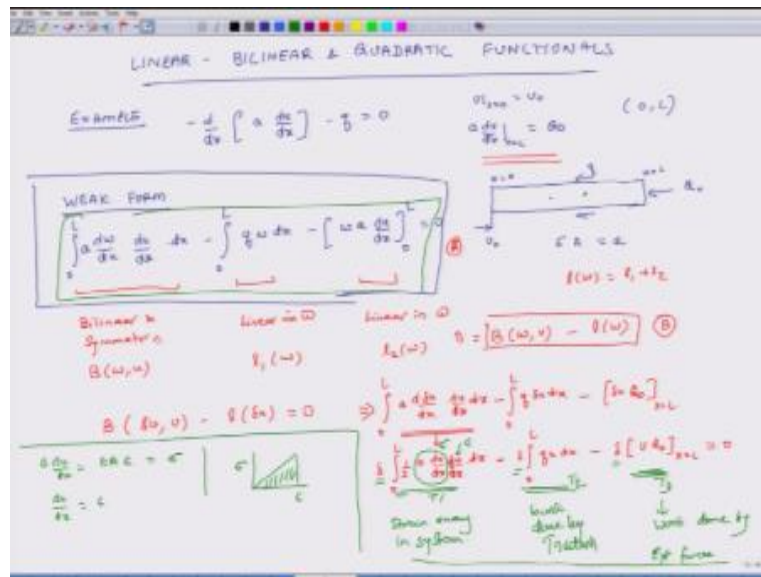 LINEAR - BILINEAR & QUADRATIC FUNCTIONALS
Example - d/dx [ a du/dx ] - q = 0
u|x=0 = u0
(0,L)
a du/dx |x=L = Q0
x=0
x=L
WEAK FORM
∫0^L a dw/dx du/dx dx - ∫0^L q w dx - [ w a du/dx ]0^L = 0
A
Bilinear &
Symmetric
B(w,u)
Linear in w
l1(w)
Linear in w
l2(w)
l(w) = l1 + l2
0 = B(w,u) - l(w)
B
B(δu,u) - l(δu) = 0
⇒ ∫0^L a dδu/dx du/dx dx - ∫0^L q δu dx - [δu Q0]x=L
δ ∫0^L 1/2 a du/dx du/dx dx - δ ∫0^L q u dx - δ [u Q0]x=L = 0
du/dx = ε
σ
ε
Strain energy
in system
work
done by
Traction
work done by
Ext force